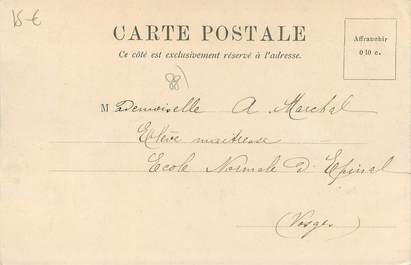 15 €
CARTE POSTALE
Ce côté est exclusivement réservé à l'adresse.
Affranchir
0,10 c.
(88)
Mademoiselle A Marchal
Elève maitresse
Ecole Normale d'Epinal
(Vosges)